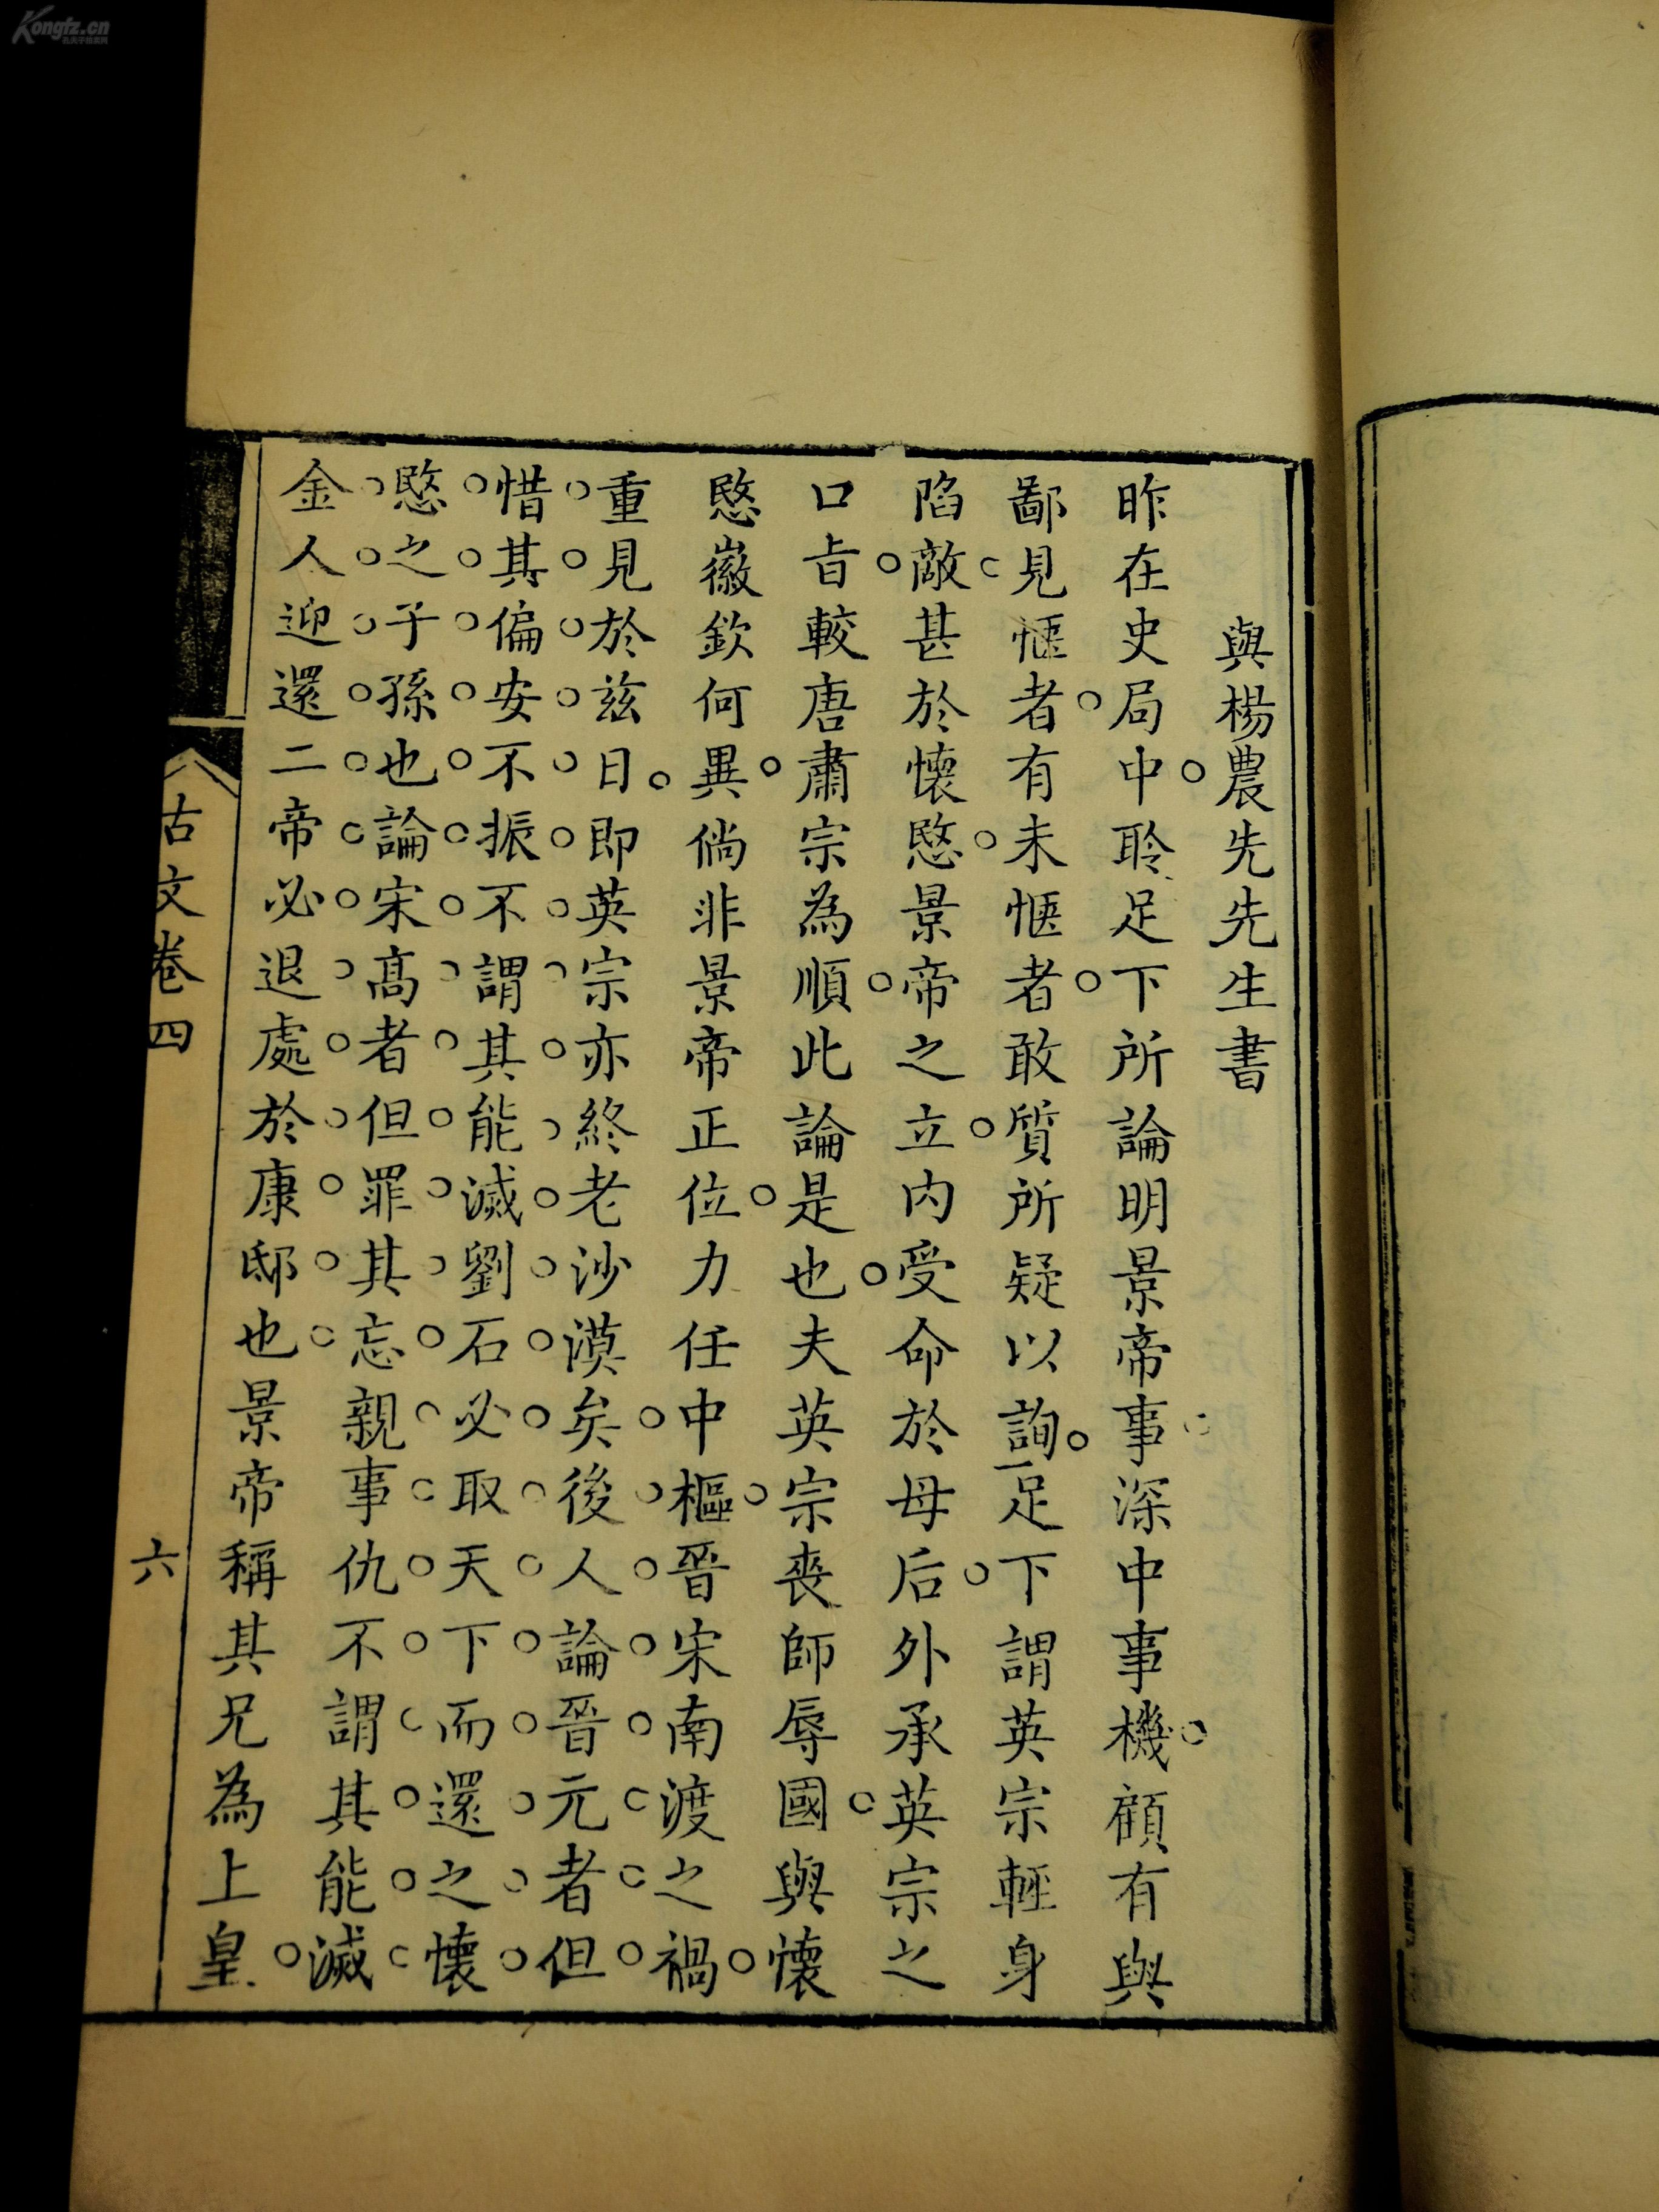 與楊農先先生書
昨在史局中聆足下所論明景帝事深中事機顧有與
鄙見愜者有未愜者敢質所疑以詢足下謂英宗輕身
陷敵甚於懷愍景帝之立內受命於母后外承英宗之
口旨較唐肅宗為順此論是也夫英宗喪師辱國與懷
愍徽欽何異倘非景帝正位力任中樞晉宋南渡之禍
重見於茲日即英宗亦終老沙漠矣後人論晉元者但
惜其偏安不振不謂其能滅劉石必取天下而還之懷
愍之子孫也論宋高者但罪其忘親事仇不謂其能滅
金人迎還二帝必退處於康邸也景帝稱其兄為上皇
古文卷四
六
Kongfz.cn